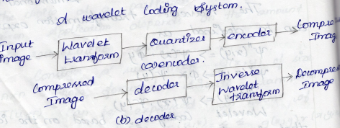 d. wavelet Coding System.
Input image
Wavelet transform
Quantizer
encoder
Compre
Imag
(a) encoder.
Compressed Image
decoder
Inverse Wavelet transform
Decompre
Image
(b) decoder